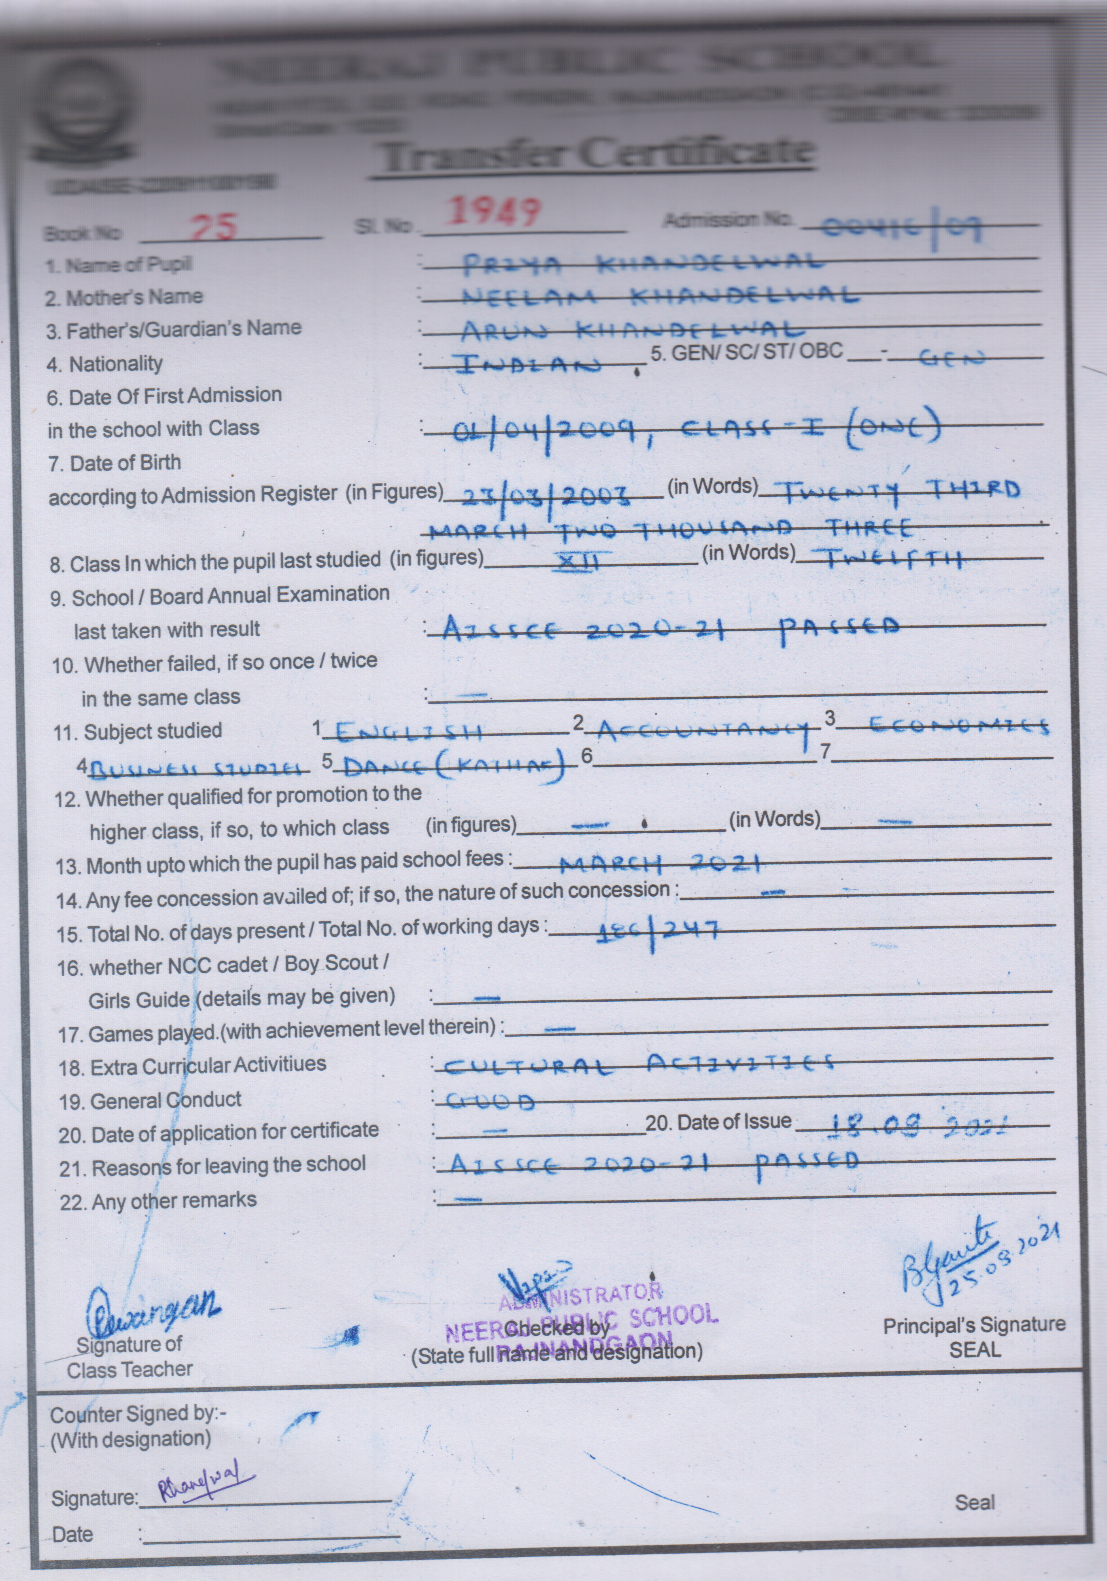 NEERAJ PUBLIC SCHOOL
Transfer Certificate
Book No 25 Sl. No. 1949 Admission No.
1. Name of Pupil : PRIYA KHANDELWAL
2. Mother's Name : NEELAM KHANDELWAL
3. Father's/Guardian's Name : ARUN KHANDELWAL
4. Nationality : INDIAN 5. GEN/ SC/ ST/ OBC - GEN
6. Date Of First Admission
in the school with Class : 01/04/2009, CLASS-I (ONE)
7. Date of Birth
according to Admission Register (in Figures) 23/03/2003 (in Words) TWENTY THIRD
MARCH TWO THOUSAND THREE
8. Class In which the pupil last studied (in figures) XII (in Words) TWELFTH
9. School / Board Annual Examination
last taken with result : AISSCE 2020-21 PASSED
10. Whether failed, if so once / twice
in the same class : —
11. Subject studied 1 ENGLISH 2 ACCOUNTANCY 3 ECONOMICS
4 BUSINESS STUDIES 5 DANCE (KATHAK) 6 7
12. Whether qualified for promotion to the
higher class, if so, to which class (in figures) — (in Words) —
13. Month upto which the pupil has paid school fees : MARCH 2021
14. Any fee concession availed of; if so, the nature of such concession : —
15. Total No. of days present / Total No. of working days : /247
16. whether NCC cadet / Boy Scout /
Girls Guide (details may be given) : —
17. Games played.(with achievement level therein) : —
18. Extra Curricular Activitiues : CULTURAL ACTIVITIES
19. General Conduct : GOOD
20. Date of application for certificate : — 20. Date of Issue 18.09 2021
21. Reasons for leaving the school : AISSCE 2020-21 PASSED
22. Any other remarks : —
25.09.2021
Signature of
Class Teacher
ADMINISTRATOR
NEERAJ PUBLIC SCHOOL
RAJNANDGAON
Checked by
(State full name and designation)
Principal's Signature
SEAL
Counter Signed by:-
(With designation)
Signature: Khandelwal
Date :
Seal